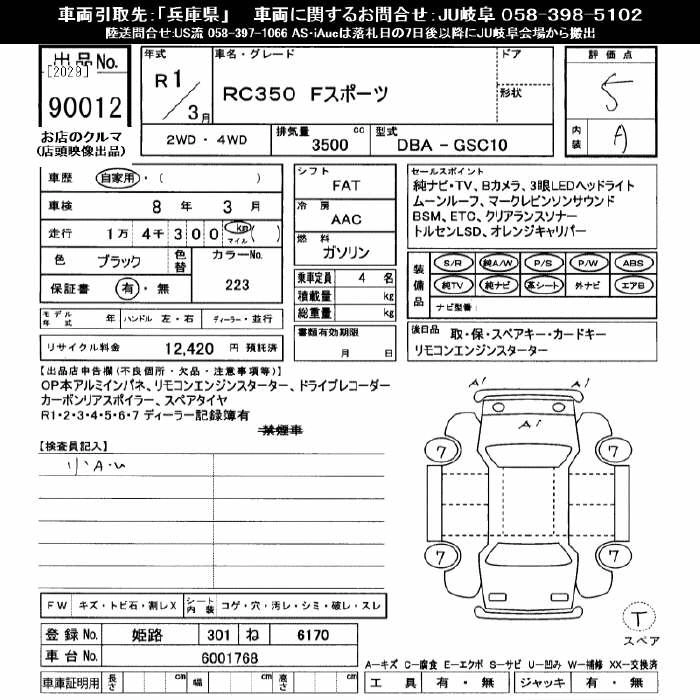 車両引取先:「兵庫県」 車両に関するお問合せ:JU岐阜 058-398-5102
陸送問合せ:US流 058-397-1066 AS-iAucは落札日の7日後以降にJU岐阜会場から搬出
出品No.
[2029]
90012
お店のクルマ
(店頭映像出品)
年式
R1/3月
車名・グレード
RC350 Fスポーツ
ドア
形状
評価点
5
内装
A
2WD・4WD
排気量
3500 cc
型式
DBA - GSC10
車歴 自家用・( )
車検 8年 3月
走行 1万 4千 300 km マイル ( )
色 ブラック
色替
カラーNo.
223
保証書 有・無
シフト
FAT
冷房
AAC
燃料
ガソリン
乗車定員 4 名
積載量 kg
総重量 kg
セールスポイント
純ナビ・TV、Bカメラ、3眼LEDヘッドライト
ムーンルーフ、マークレビンソンサウンド
BSM、ETC、クリアランスソナー
トルセンLSD、オレンジキャリパー
装備品
S/R 純A/W P/S P/W ABS
純TV 純ナビ 革シート 外ナビ エアB
ナビ型番:
モデル年式 年 ハンドル 左・右 ディーラー・並行
リサイクル料金 12,420 円 預託済
書類有効期限
月 日
後日品
取・保・スペアキー・カードキー
リモコンエンジンスターター
【出品店申告欄(不良個所・欠品・注意事項等)】
OP本アルミインパネ、リモコンエンジンスターター、ドライブレコーダー
カーボンリアスポイラー、スペアタイヤ
R1・2・3・4・5・6・7 ディーラー記録簿有
禁煙車
【検査員記入】
小A・U
A1 A1
A1
7 7
7 7
T
スペア
FW キズ・トビ石・割レX シート内装 コゲ・穴・汚レ・シミ・破レ・スレ
登録No. 姫路 301 ね 6170
車台No. 6001768
車庫証明用 長さ cm 幅 cm 高さ cm
A—キズ C—腐食 E—エクボ S—サビ U—凹み W—補修 XX—交換済
工具 有・無 ジャッキ 有・無